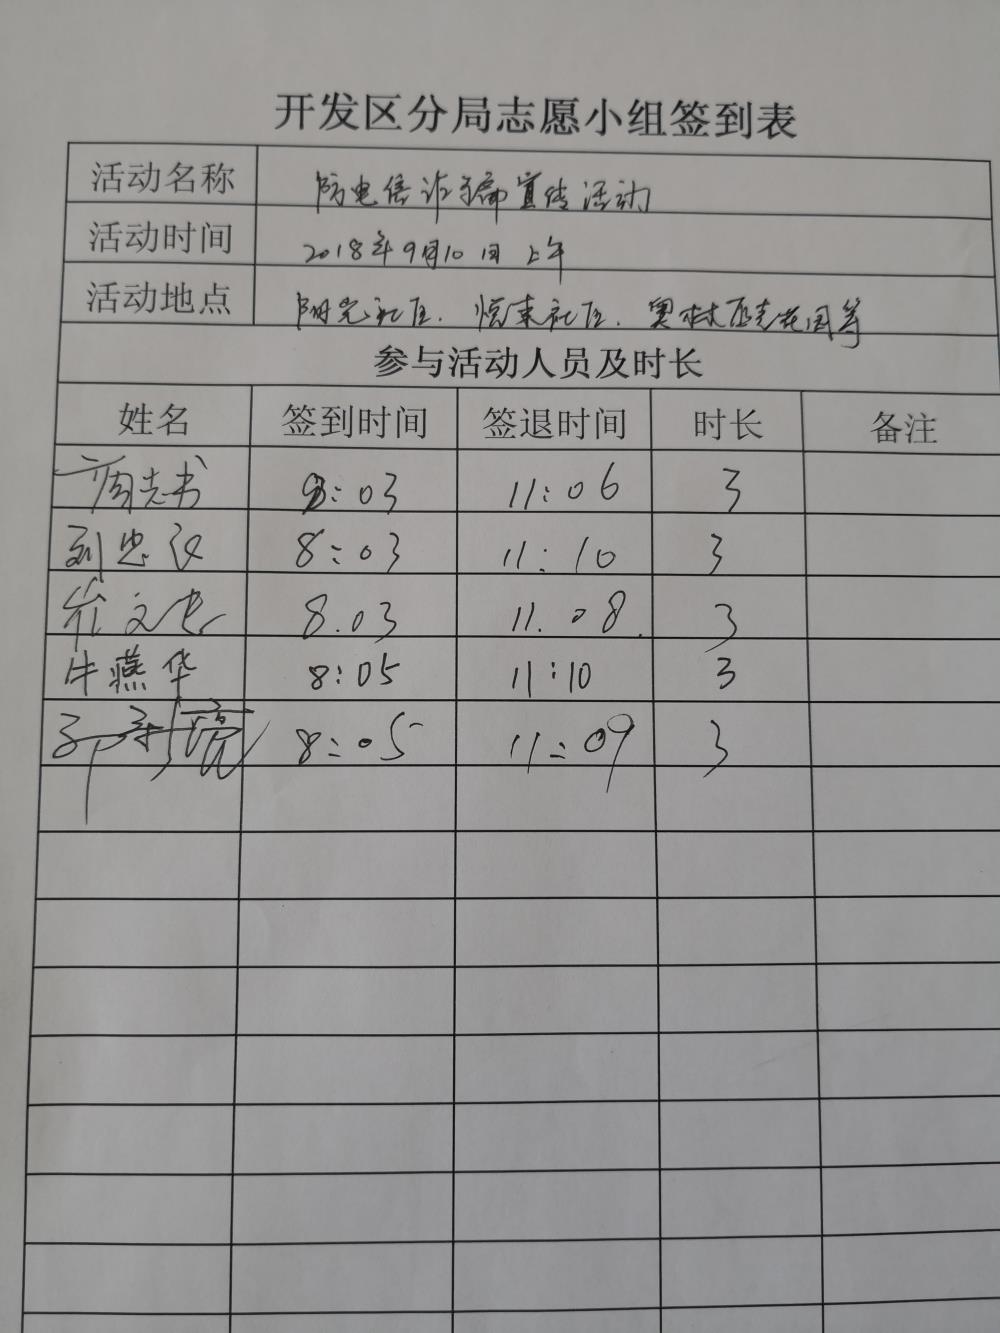 开发区分局志愿小组签到表
活动名称 防电信诈骗宣传活动
活动时间 2018年9月10日上午
活动地点 阳光社区、悦来社区、奥林匹克花园等
参与活动人员及时长
姓名 签到时间 签退时间 时长 备注
8:03 11:06 3
刘忠 8:03 11:10 3
崔文 8.03 11.08. 3
牛燕华 8:05 11:10 3
8:05 11:09 3